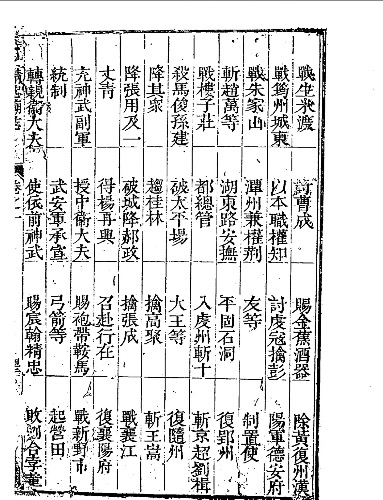 戰生米渡
戰筠州城東
戰朱家山
斬趙萬等
戰樓子莊
殺馬俊孫建
降其衆
降張用及一
丈靑
充神武副軍
統制
轉親衛大夫
討曹成
以本職權知
潭州兼權荆
湖東路安撫
都總管
破太平場
趨桂林
破城降郝政
得楊再興
授中衛大夫
武安軍承宣
使依前神武
賜金蕉酒器
討虔寇擒彭
友等
平固石洞
入虔州斬十
大王等
擒高聚
擒張成
召赴行在
賜袍帶鞍馬
弓箭等
賜宸翰精忠
除黃復州漢
陽軍德安府
制置使
復郢州
斬京超劉楫
復隨州
斬王嵩
戰襄江
復襄陽府
戰新野市
起營田
敗劉合孛堇